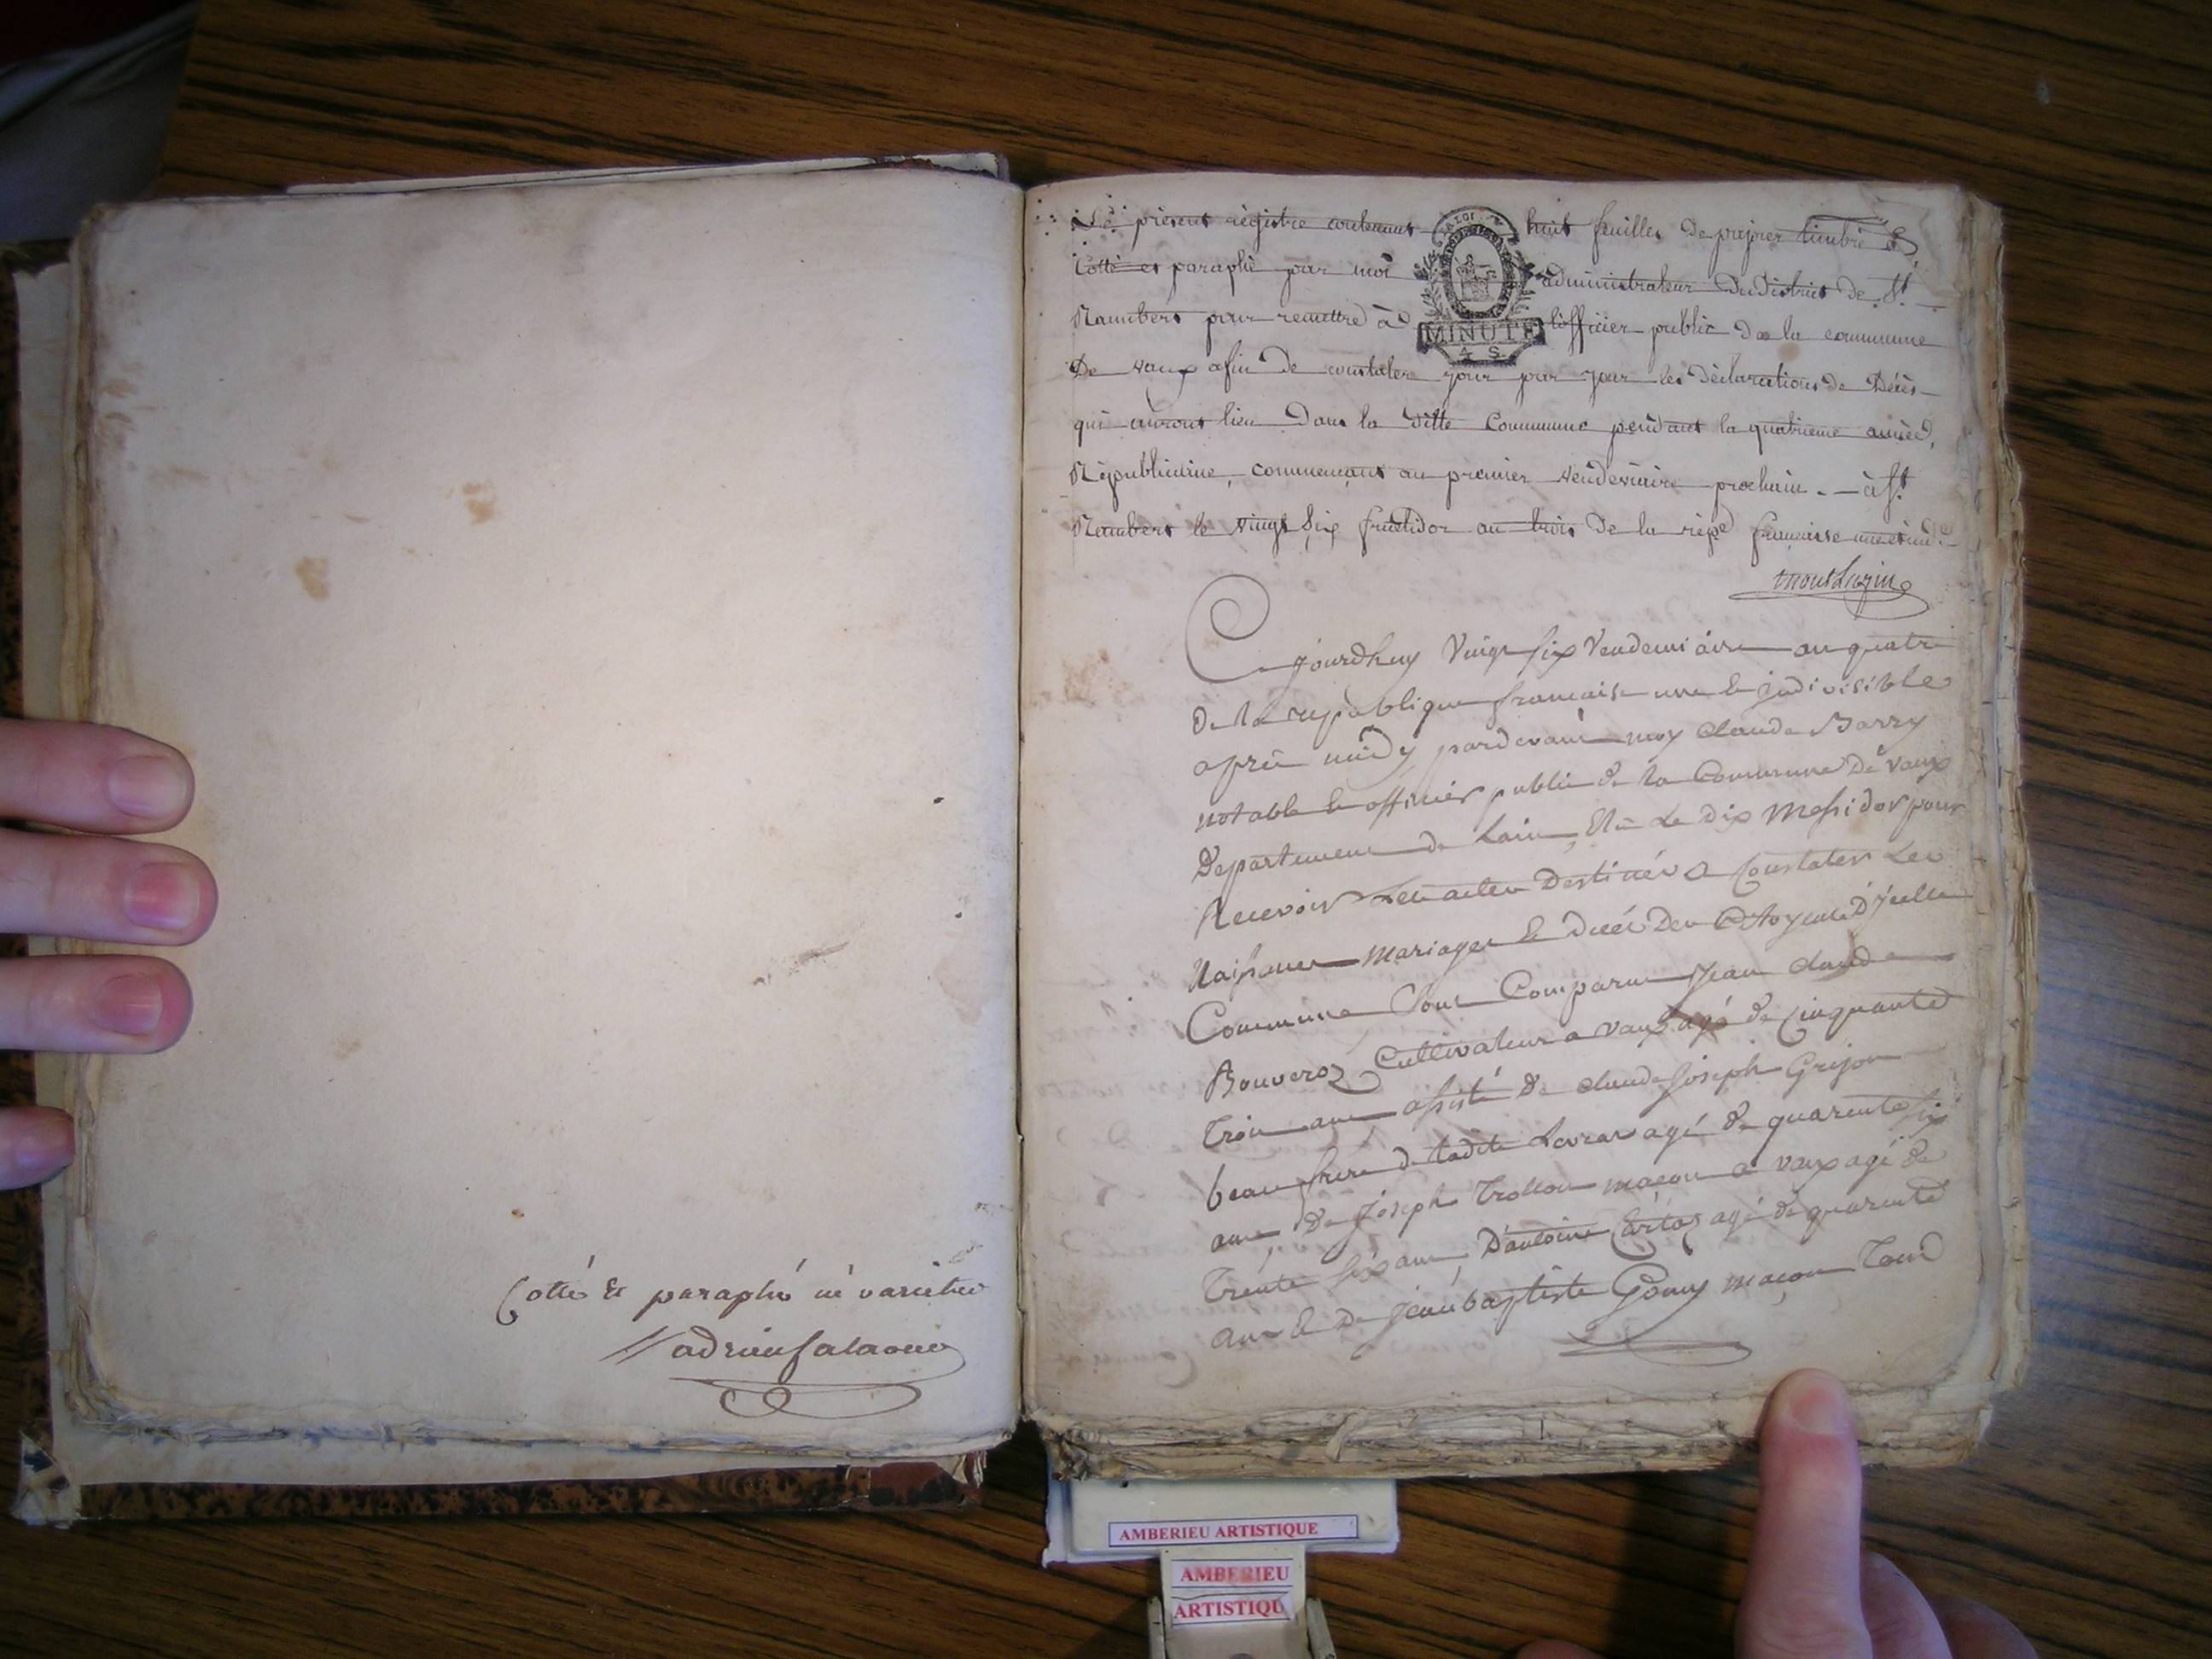 Cotté & paraphé
Le present règistre contenant huit feuilles de papier timbré &
Cotté et paraphé par moi administrateur Du District de St
Rambert pour remettre à l'officier public de la commune
De vaux afin de constater jour par jour les déclarations de Décès
qui auront lieu Dans la ditte Commune pendant la quatrieme année
Républicaine, commençant au premier vendemiaire prochain. - à St
Rambert le vingt Six fructidor an trois de la répe française une et inde
montluzin
LA LOI
MINUTE
4 S.
Cejourdhuy Vingt six Vendemiaire an quatre
De la republique francaise une & jndivisible
après midy pardevant moy Claude Barry
notable & officier public de la Commune De vaux
Département de Lain, Elu Le Dix Messidor pour
Recevoir Les actes Destinés a Constater Les
Naissances mariages & Decés Des Citoyens D'jcelle
Commune Sont Comparus Jean claude
Bouveroz Cultivateur a vaux agé de Cinquante
Trois ans, assisté De claude Joseph Grijon
beau frere de ladite agé de quarente six
ans, De Joseph Trollon maçon a vaux agé de
Trente six ans, D'antoine agé de quarente
ans & De Jean baptiste Gomy maçon Tous
AMBERIEU ARTISTIQUE
AMBERIEU
ARTISTIQU